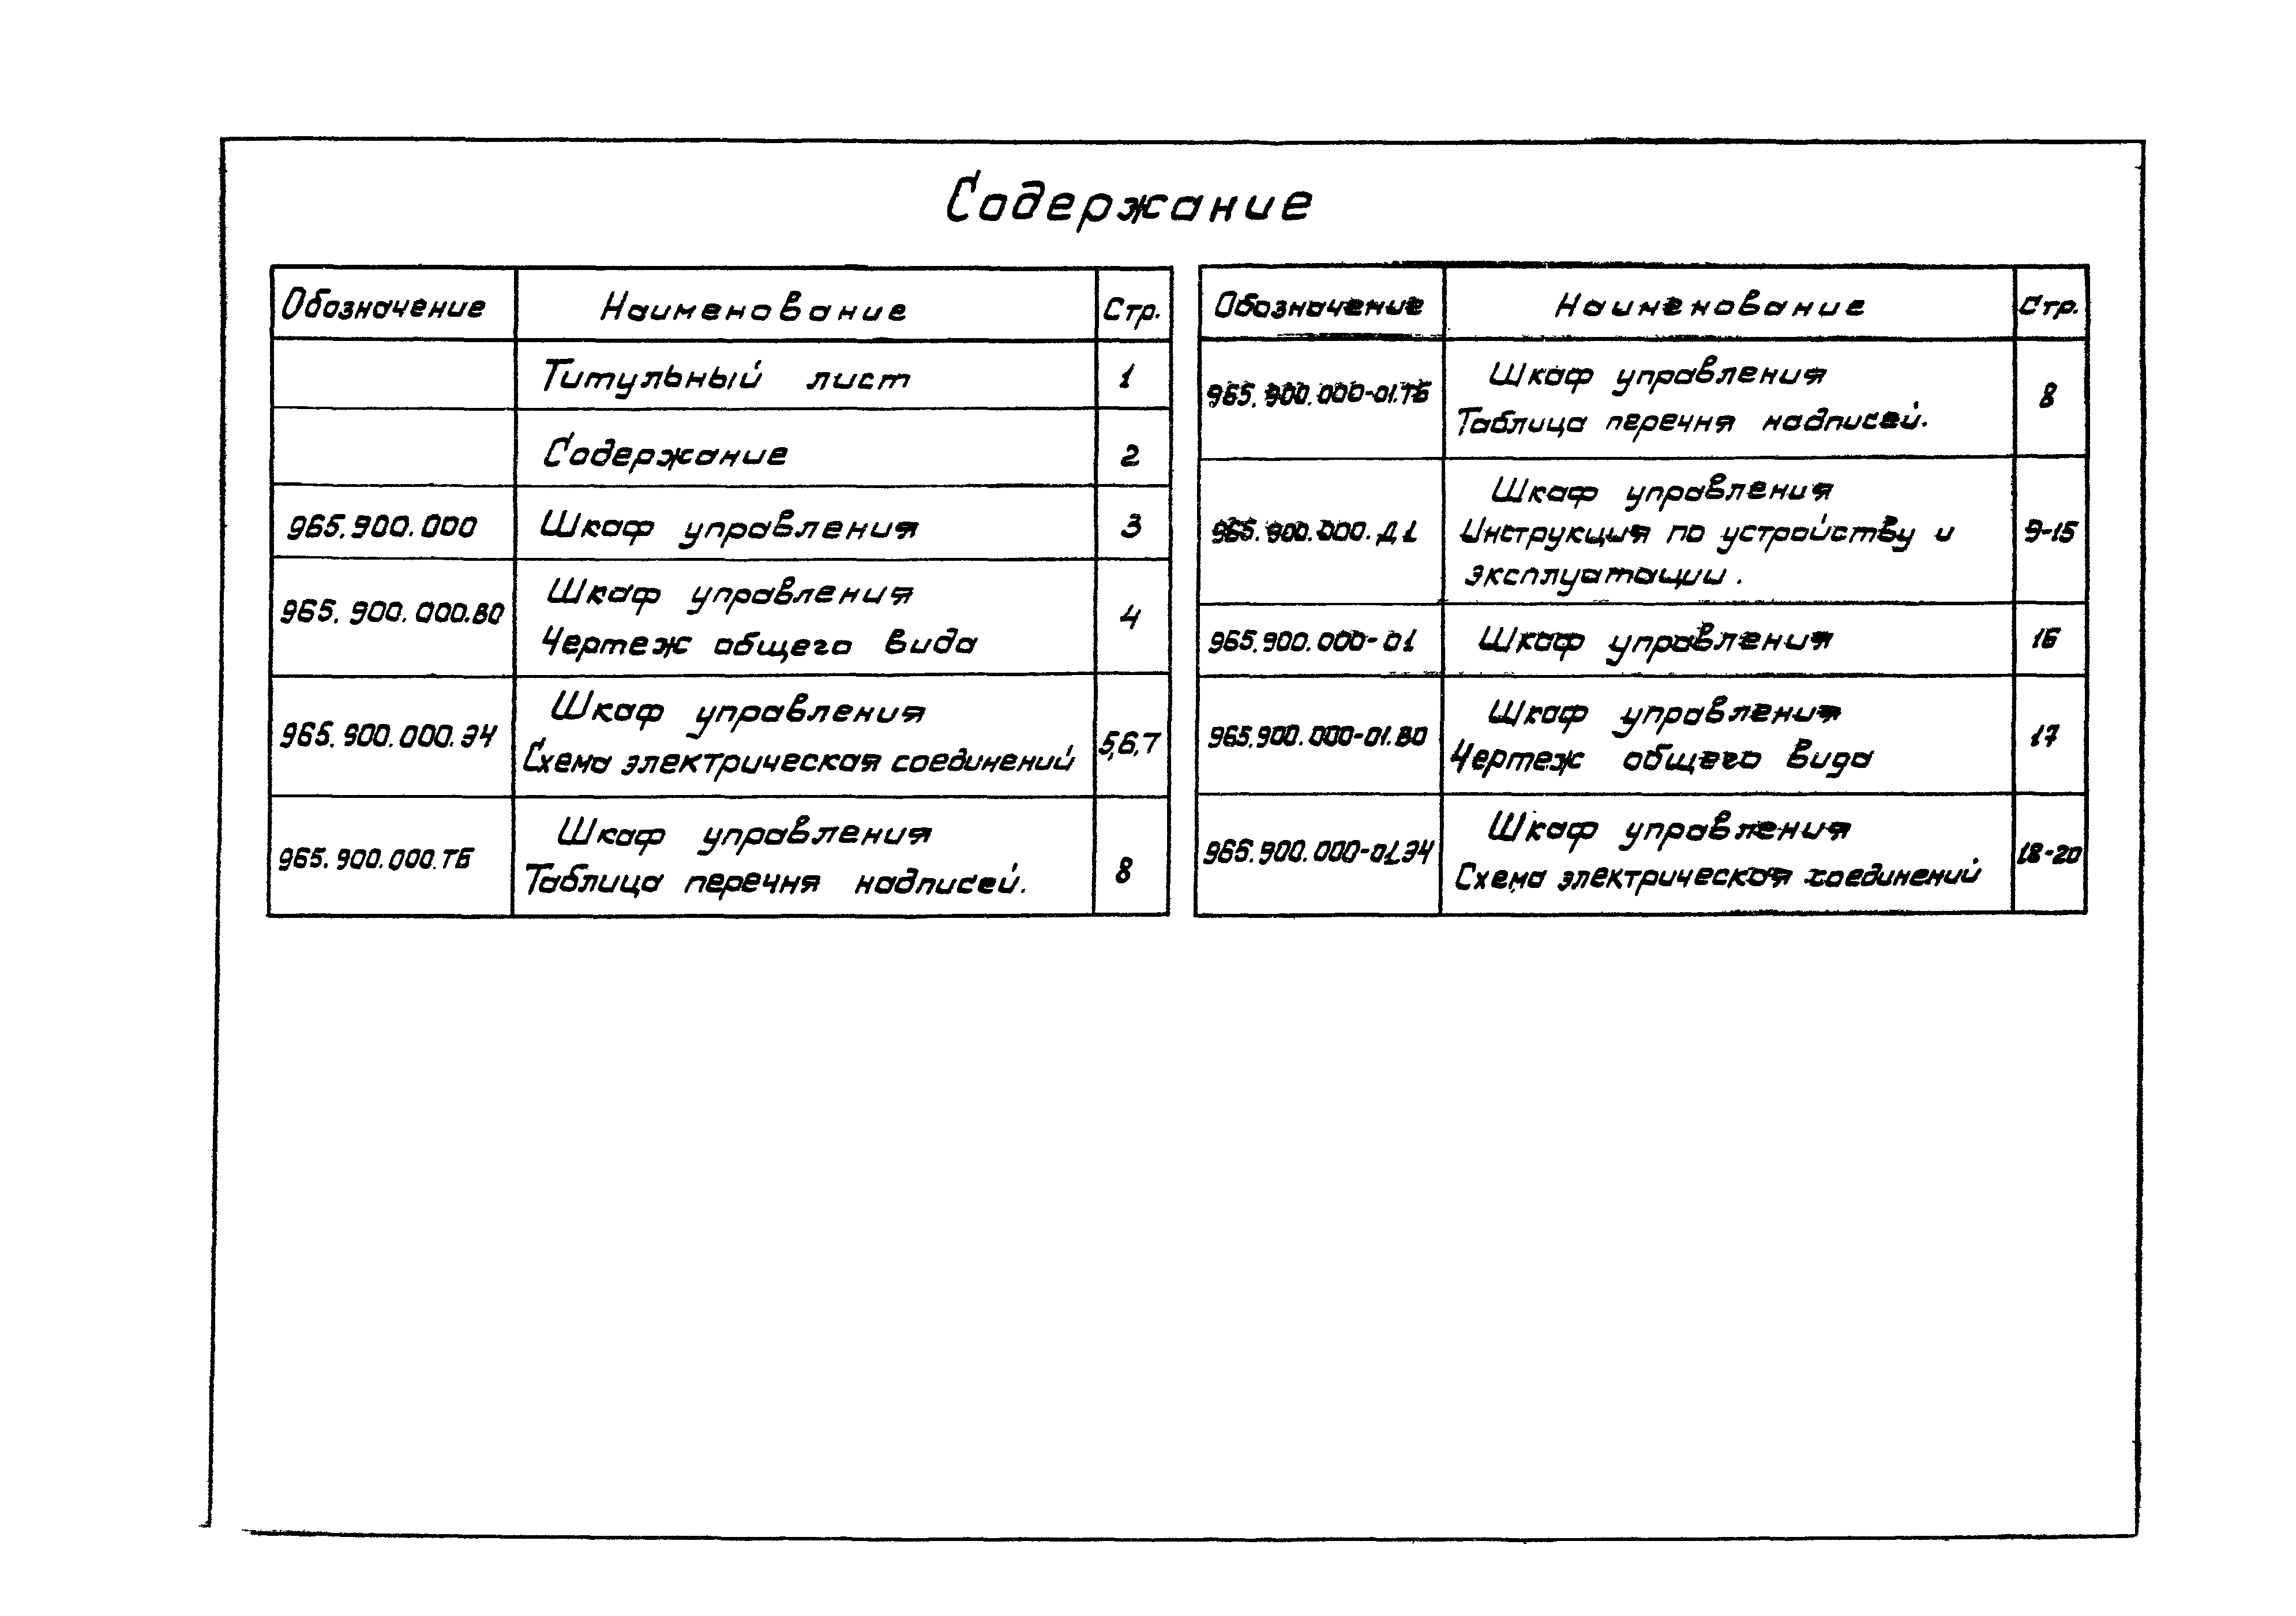 Содержание
Обозначение Наименование Стр.
Титульный лист 1
Содержание 2
965.900.000 Шкаф управления 3
965.900.000.ВО Шкаф управления
Чертеж общего вида 4
965.900.000.Э4 Шкаф управления
Схема электрическая соединений 5,6,7
965.900.000.ТБ Шкаф управления
Таблица перечня надписей. 8
Обозначение Наименование Стр.
965.900.000-01.ТБ Шкаф управления
Таблица перечня надписей. 8
965.900.000.Д1 Шкаф управления
Инструкция по устройству и
эксплуатации. 9-15
965.900.000-01 Шкаф управления 16
965.900.000-01.ВО Шкаф управления
Чертеж общего вида 17
965.900.000-01.Э4 Шкаф управления
Схема электрическая соединений 18-20